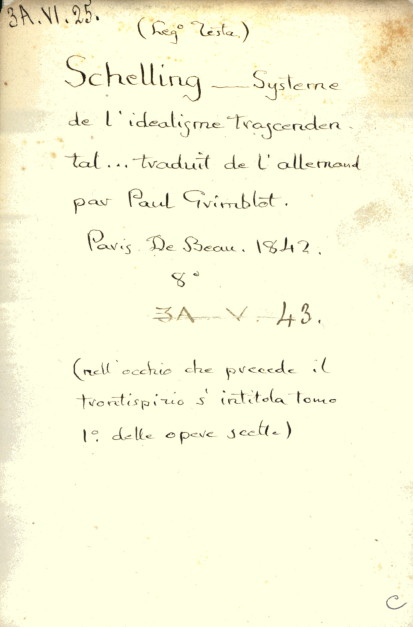 3A.VI.25.
(Leg° Testa)
Schelling — Systeme
de l'idealisme trascenden-
tal... traduit de l'allemand
par Paul Grimblot.
Paris De Beau. 1842.
8°
3A — V. — 43.
(nell'occhio che precede il
frontispizio s'intitola tomo
1° delle opere scelte)
C